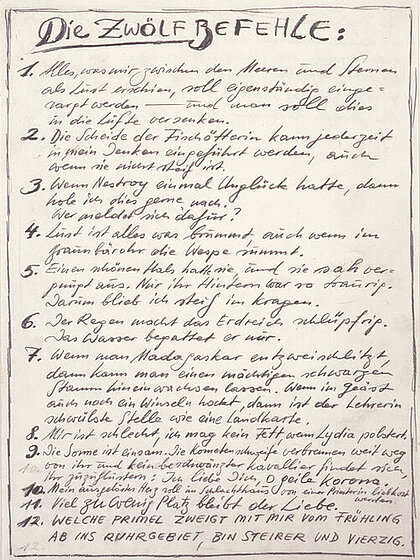 Die ZWÖLF BEFEHLE:
1. Alles, was mir zwischen den Meeren und Sternen
als Lust erschien, soll eigenständig einge-
sargt werden und man soll dies
in die Lüfte versenken.
2. Die Scheide der Fischötterin kann jederzeit
in mein Denken eingeführt werden, auch
wenn sie nicht steif ist.
3. Wenn Nestroy einmal Unglück hatte, dann
hole ich dies gerne nach.
Wer meldet sich dafür?
4. Lust ist alles was brummt, auch wenn im
Braunbärohr die Wespe summt.
5. Einen schönen Hals hatte sie und sie sah ver-
pumpt aus. Nur ihr Hintern war so traurig.
Darum blieb ich steif im Kragen.
6. Der Regen macht das Erdreich schlüpfrig.
Das Wasser begattet er nur.
7. Wenn man Madagaskar entzweischlitzt,
dann kann man einen mächtigen schwarzen
Stamm hineinwachsen lassen. Wenn im Geäst
auch noch ein Winseln hockt, dann ist der Lehrerin
schwülste Stelle wie eine Landkarte.
8. Mir ist schlecht, ich mag kein Fett, wenn Lydia polstert.
9. Die Sonne ist einsam. Die Kometenschweife verbrennen weit weg
von ihr und kein beschwänzter Kavallier findet sich
ihr zuzuflüstern: Ich liebe Dich, O geile Korona.
10. Mein ausgelöstes Herz soll im Schlachthaus von einer Printerin liebkost
werden.
11. Viel zu wenig Platz bleibt der Liebe.
12. WELCHE PRIMEL ZWEIGT MIT MIR VOM FRÜHLING
AB INS RUHRGEBIET, BIN STEIRER UND VIERZIG.